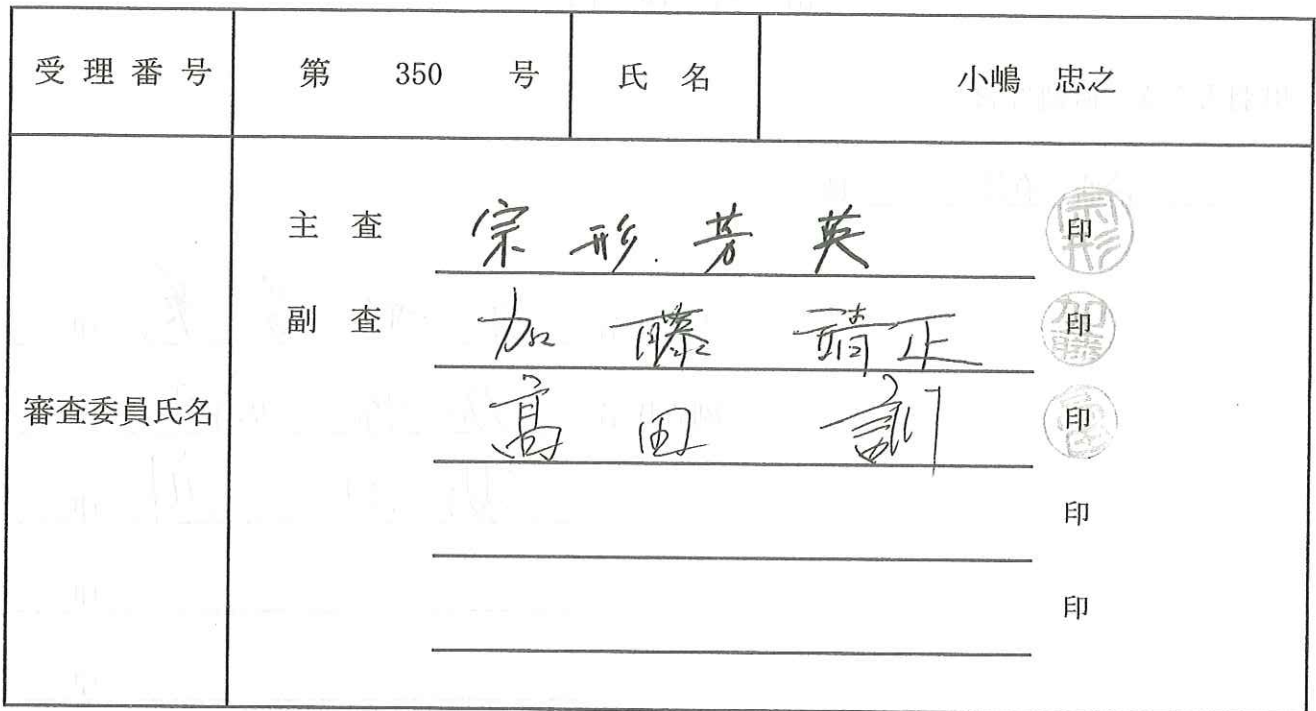 受理番号 第 350 号 氏名 小嶋 忠之
審査委員氏名
主査 宗形芳英 印
副査 加藤靖正 印
高田訓 印
印
印